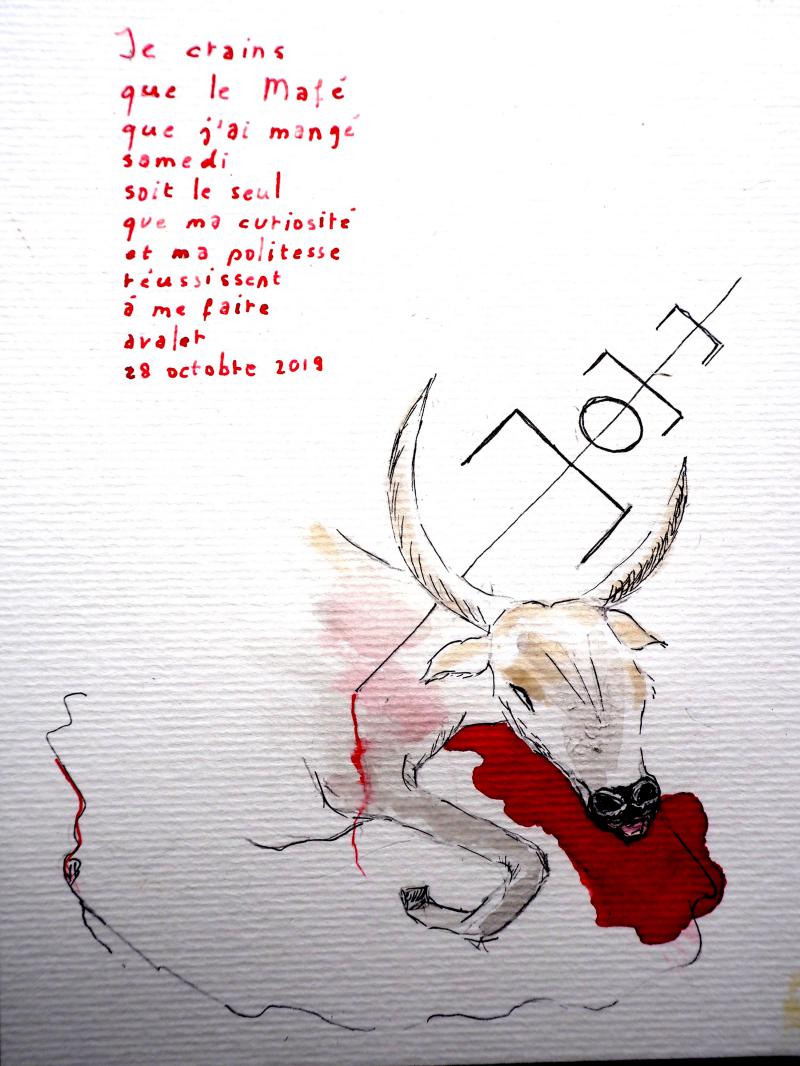 Je crains
que le Mafé
que j'ai mangé
samedi
soit le seul
que ma curiosité
et ma politesse
réussissent
à me faire
avaler
28 octobre 2019